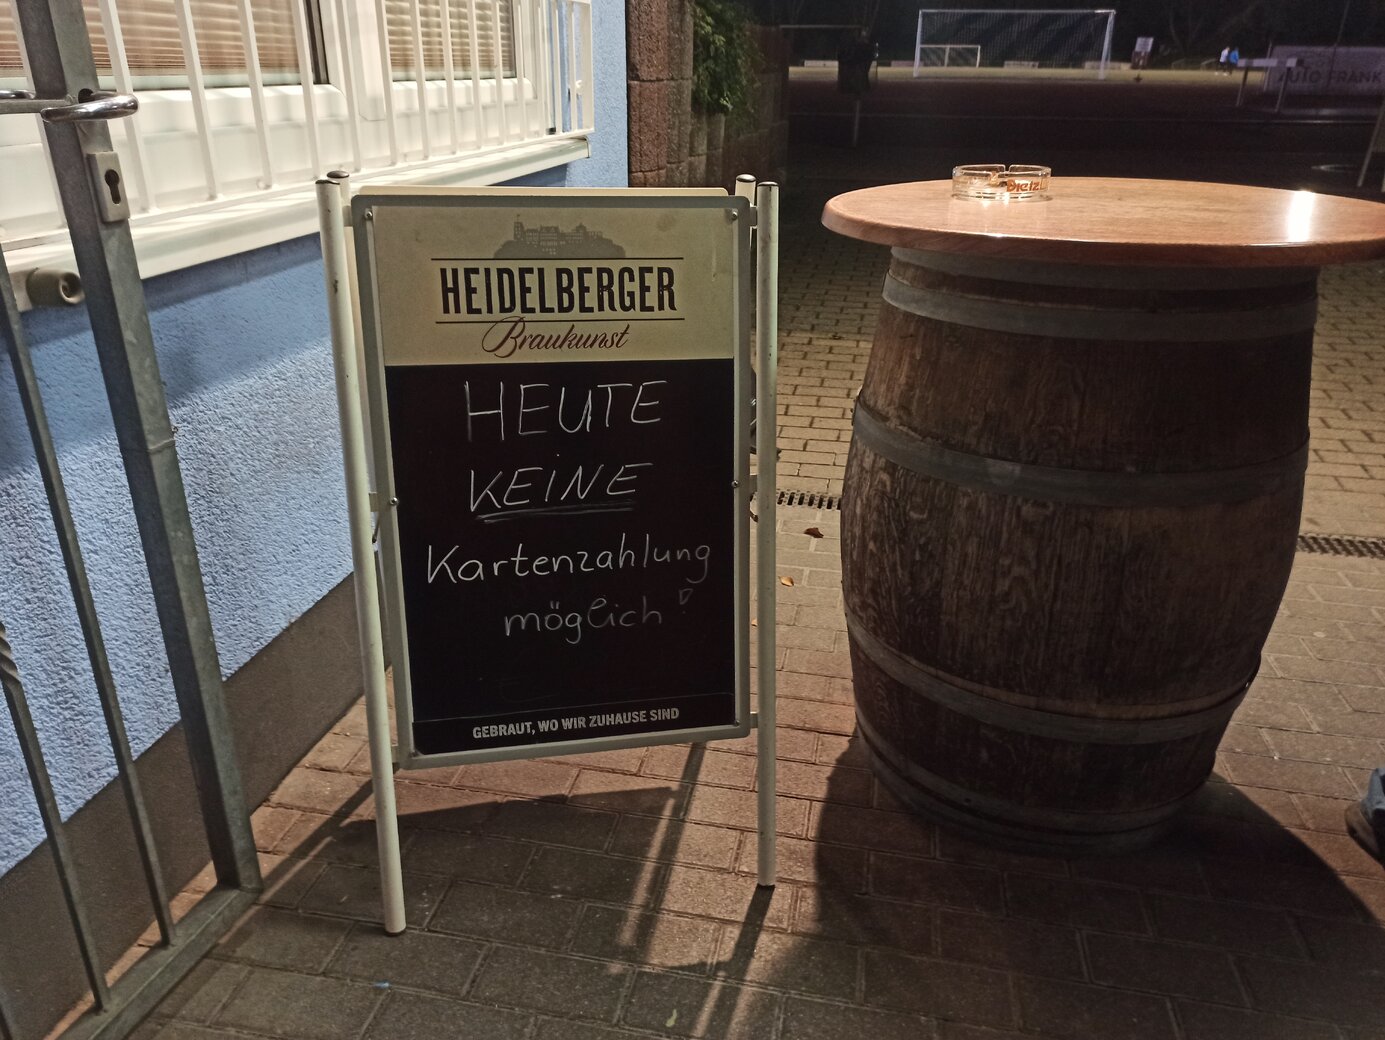 HEIDELBERGER
Braukunst
HEUTE
KEINE
Kartenzahlung
möglich!
GEBRAUT, WO WIR ZUHAUSE SIND
AUTO FRANK